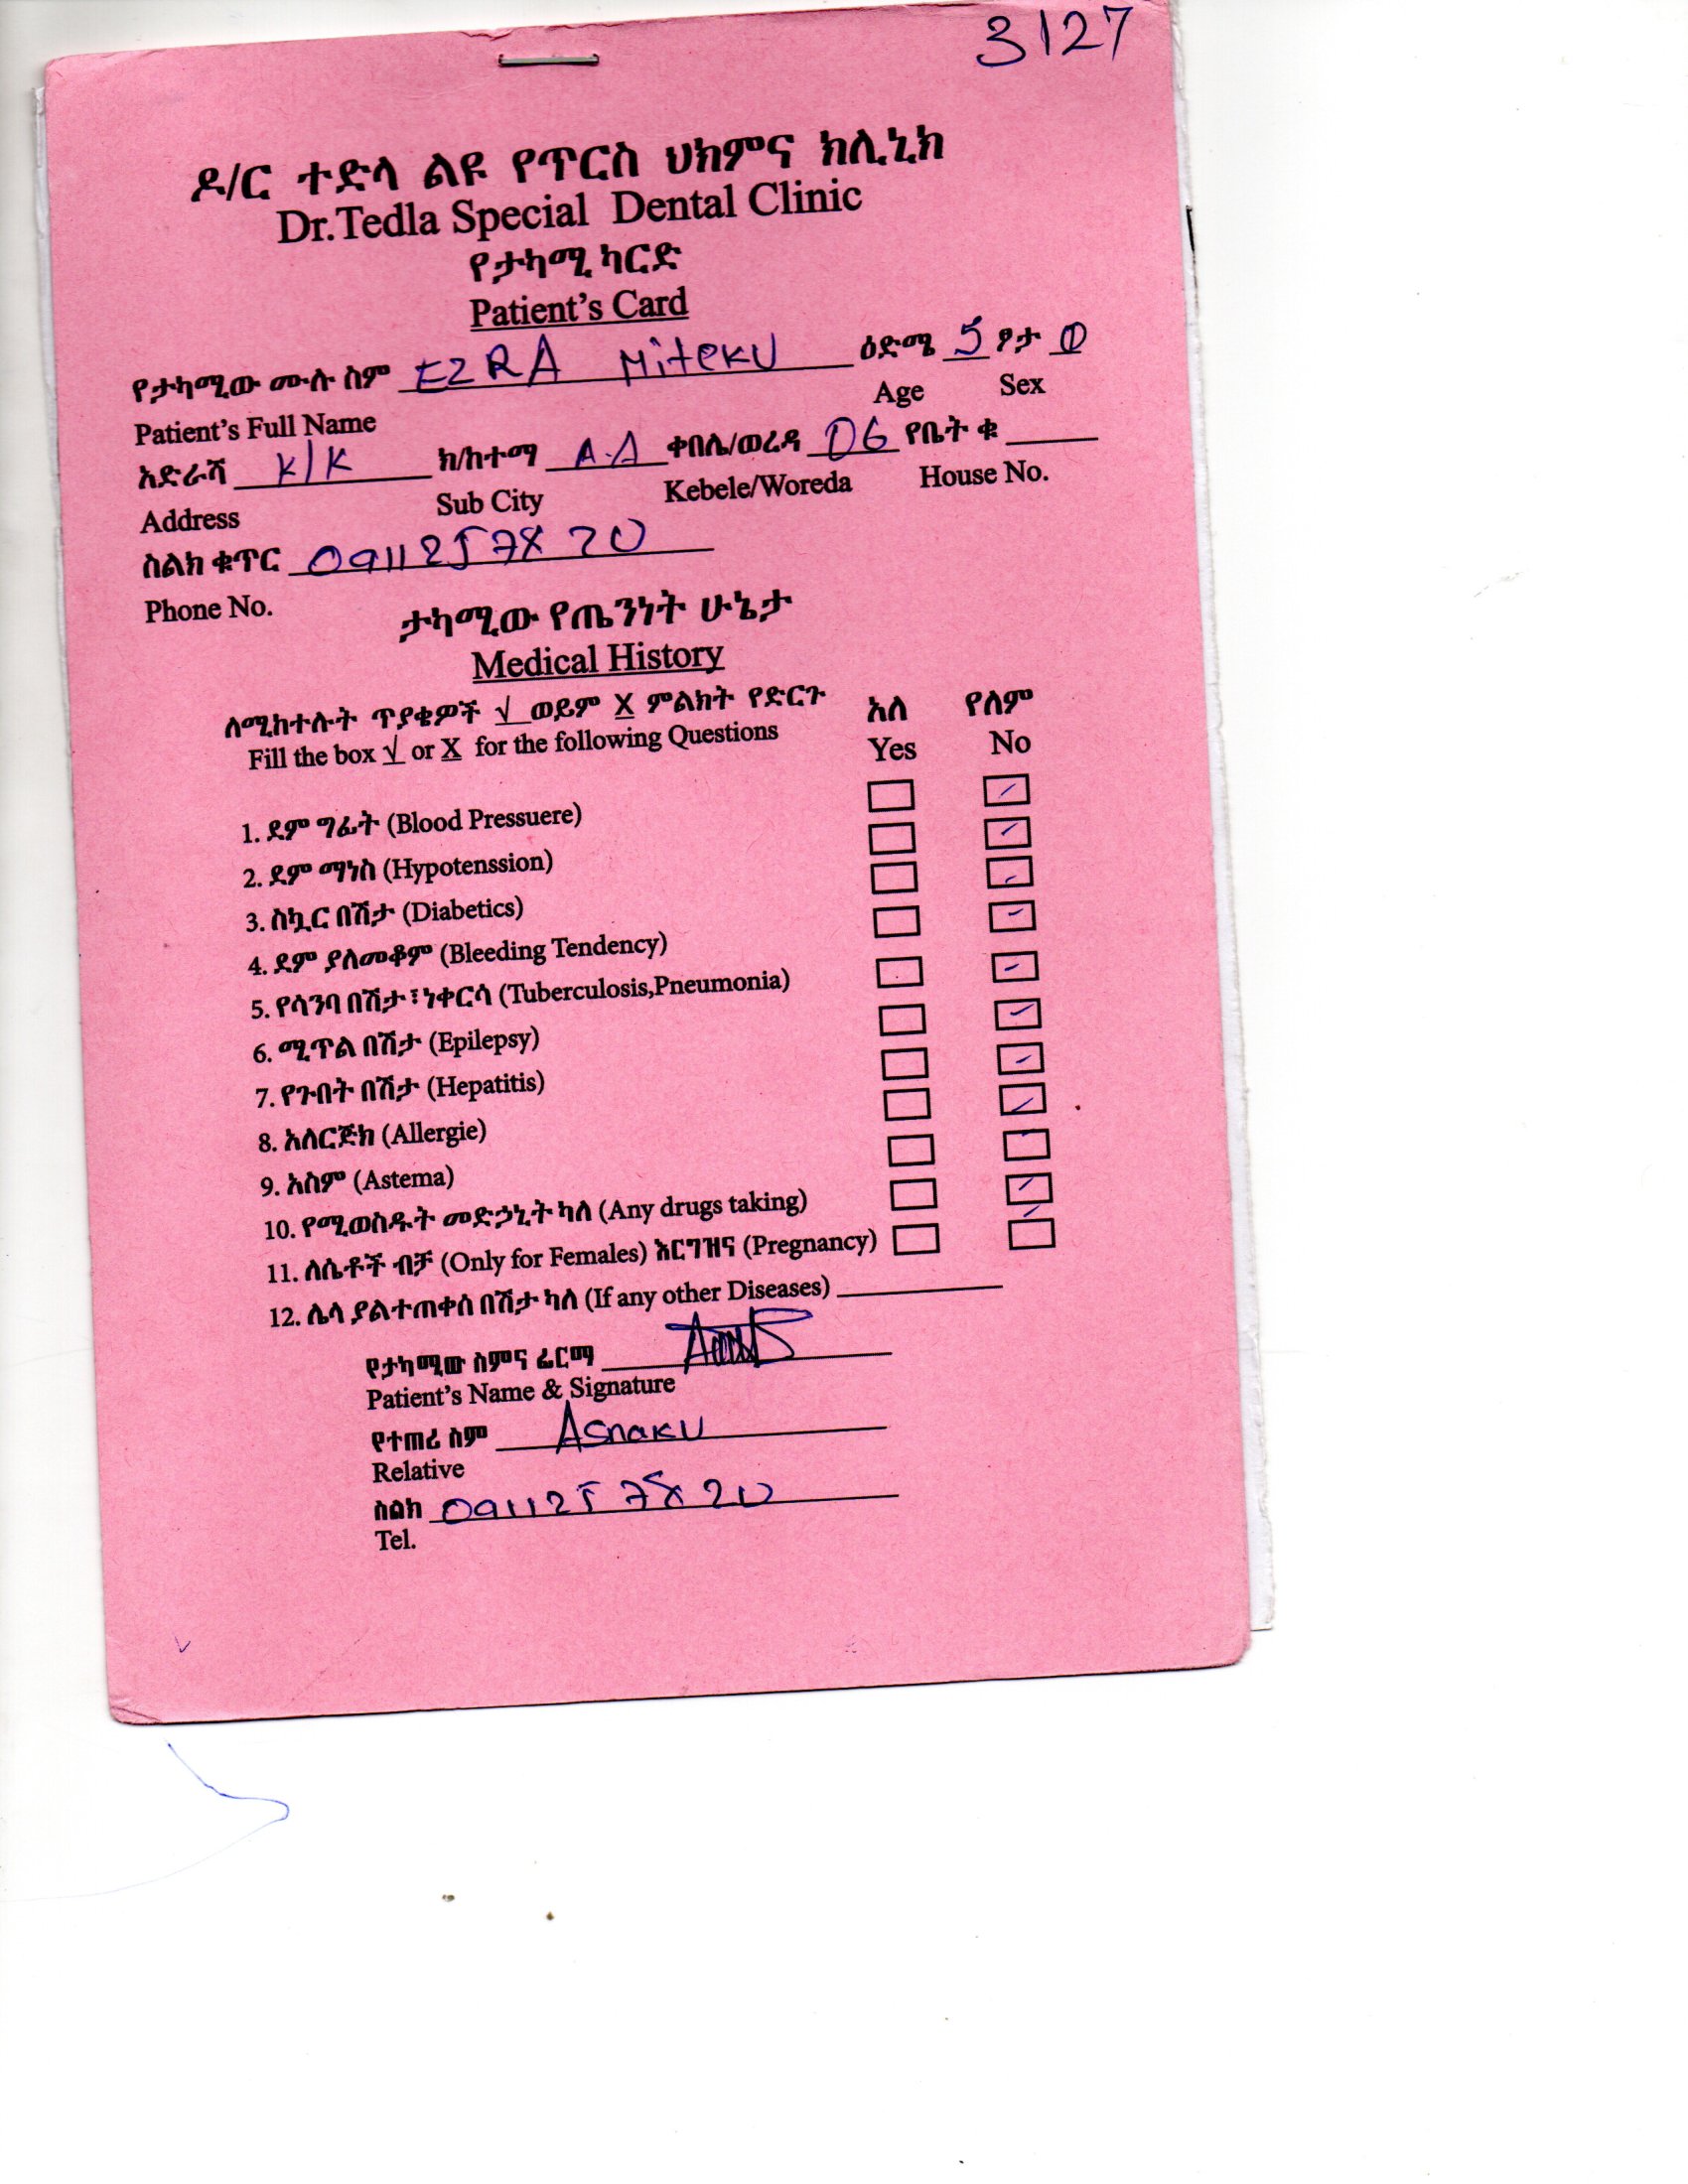 3127
ዶ/ር ተድላ ልዩ የጥርስ ህክምና ክሊኒክ
Dr.Tedla Special Dental Clinic
የታካሚ ካርድ
Patient's Card
የታካሚው ሙሉ ስም EZRA Miteku ዕድሜ 5 ፆታ
Patient's Full Name Age Sex
አድራሻ K/K ክ/ከተማ A.A ቀበሌ/ወረዳ 06 የቤት ቁ
Address Sub City Kebele/Woreda House No.
ስልክ ቁጥር 0911257820
Phone No.
ታካሚው የጤንነት ሁኔታ
Medical History
ለሚከተሉት ጥያቄዎች √ ወይም X ምልክት የድርጉ አለ የለም
Fill the box √ or X for the following Questions Yes No
1. ደም ግፊት (Blood Pressuere)
2. ደም ማነስ (Hypotenssion)
3. ስኳር በሽታ (Diabetics)
4. ደም ያለመቆም (Bleeding Tendency)
5. የሳንባ በሽታ፣ነቀርሳ (Tuberculosis,Pneumonia)
6. ሚጥል በሽታ (Epilepsy)
7. የጉበት በሽታ (Hepatitis)
8. አለርጅክ (Allergie)
9. አስም (Astema)
10. የሚወስዱት መድኃኒት ካለ (Any drugs taking)
11. ለሴቶች ብቻ (Only for Females) እርግዝና (Pregnancy)
12. ሌላ ያልተጠቀሰ በሽታ ካለ (If any other Diseases)
የታካሚው ስምና ፊርማ
Patient's Name & Signature
የተጠሪ ስም Asnaku
Relative
ስልክ 0911257820
Tel.